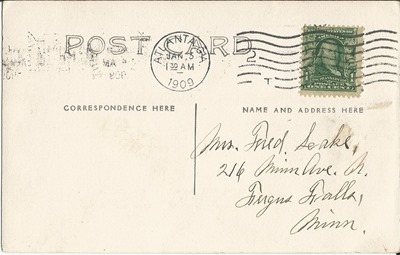 POST CARD
ATLANTA, GA.
JAN 5
1 30 AM
1909
2
T
CORRESPONDENCE HERE
NAME AND ADDRESS HERE
Mrs. Fred. Leake,
216 Minn Ave. N.
Fergus Falls,
Minn.